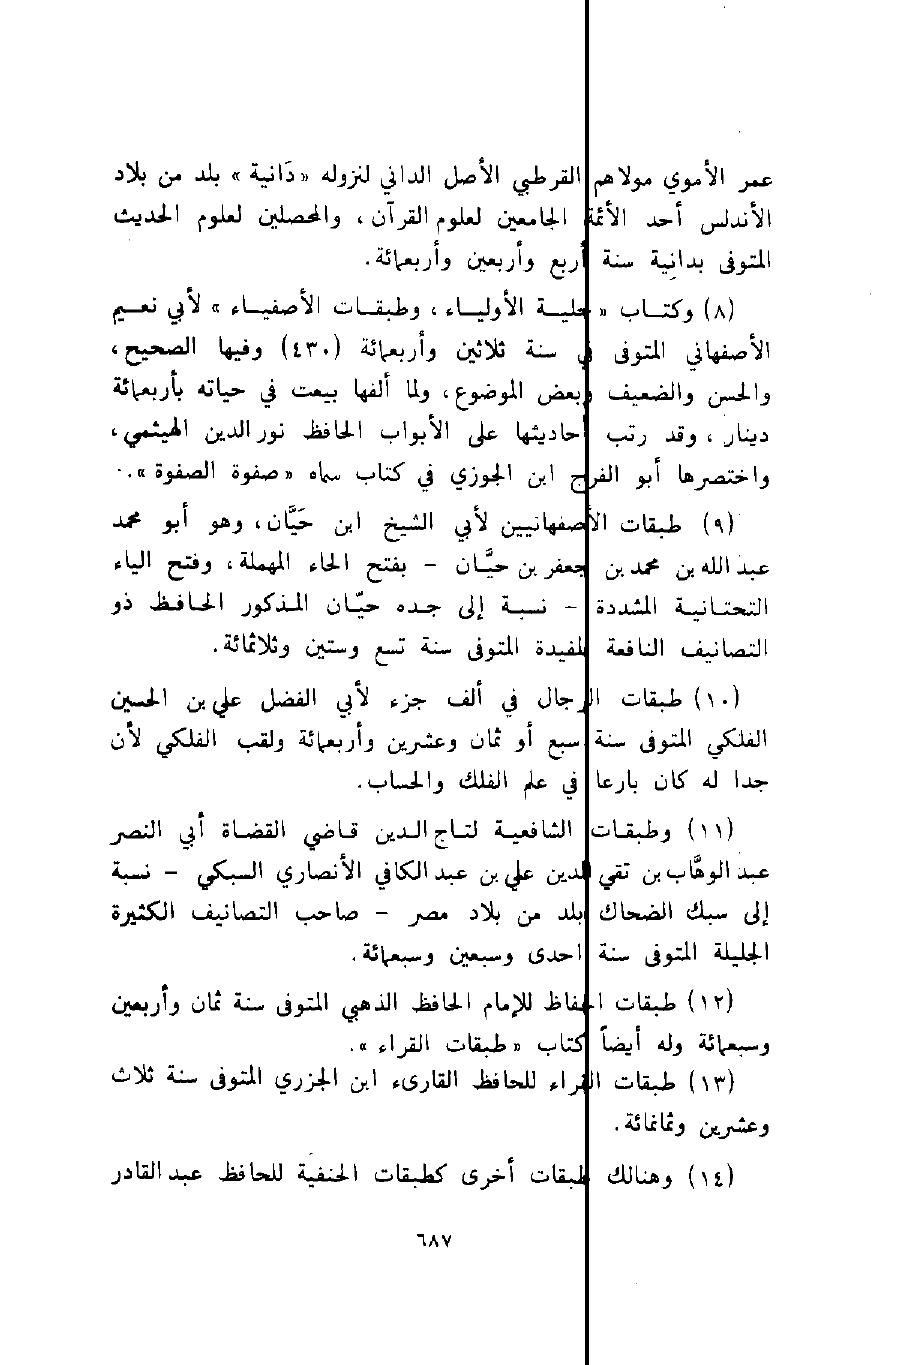 عمر الأموي مولاهم القرطبي الأصل الداني لنزوله «دَانية» بلد من بلاد
الأندلس أحد الأئمة الجامعين لعلوم القرآن، والمحصلين لعلوم الحديث
المتوفى بدانية سنة أربع وأربعين وأربعمائة.
(٨) وكتاب «حلية الأولياء، وطبقات الأصفياء» لأبي نعيم
الأصفهاني المتوفى في سنة ثلاثين وأربعمائة (٤٣٠) وفيها الصحيح،
والحسن والضعيف وبعض الموضوع، ولما ألفها بيعت في حياته بأربعمائة
دينار، وقد رتب أحاديثها على الأبواب الحافظ نور الدين الهيثمي،
واختصرها أبو الفرج ابن الجوزي في كتاب سماه «صفوة الصفوة».
(٩) طبقات الأصفهانيين لأبي الشيخ ابن حَيَّان، وهو أبو محمد
عبد الله بن محمد بن جعفر بن حيَّان - بفتح الحاء المهملة، وفتح الياء
التحتانية المشددة - نسبة إلى جده حيّان المذكور الحافظ ذو
التصانيف النافعة المفيدة المتوفى سنة تسع وستين وثلاثمائة.
(١٠) طبقات الرجال في ألف جزء لأبي الفضل علي بن الحسين
الفلكي المتوفى سنة سبع أو ثمان وعشرين وأربعمائة ولقب الفلكي لأن
جدا له كان بارعا في علم الفلك والحساب.
(١١) وطبقات الشافعية لتاج الدين قاضي القضاة أبي النصر
عبد الوهَّاب بن تقي الدين علي بن عبد الكافي الأنصاري السبكي - نسبة
إلى سبك الضحاك بلد من بلاد مصر - صاحب التصانيف الكثيرة
الجليلة المتوفى سنة احدى وسبعين وسبعمائة.
(١٢) طبقات الحفاظ للإمام الحافظ الذهبي المتوفى سنة ثمان وأربعين
وسبعمائة وله أيضاً كتاب «طبقات القراء».
(١٣) طبقات القراء للحافظ القارىء ابن الجزري المتوفى سنة ثلاث
وعشرين وثمانمائة.
(١٤) وهنالك طبقات أخرى كطبقات الحنفية للحافظ عبد القادر
٦٨٧